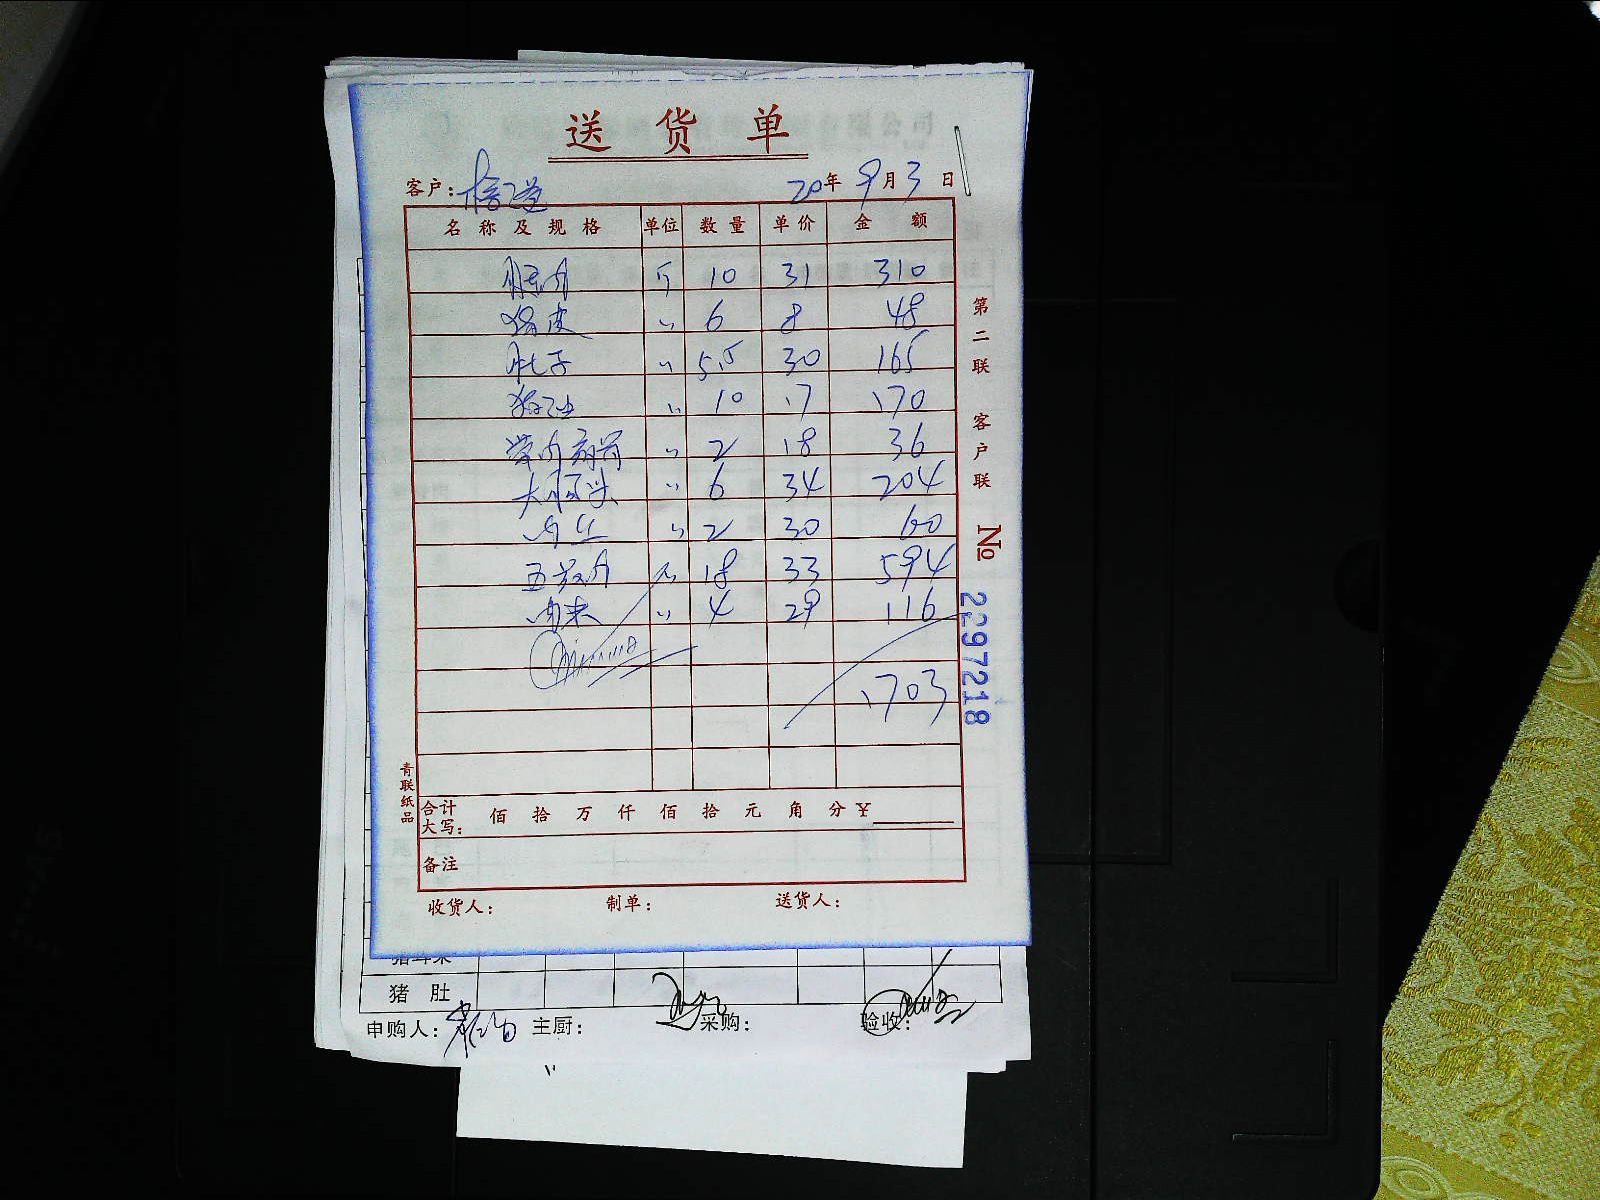 送货单
客户： 20年9月3日
名称及规格 单位 数量 单价 金额
腿肉 斤 10 31 310
猪皮 〃 6 8 48
肚子 〃 5.5 30 165
猪油 〃 10 17 170
带肉扇骨 〃 2 18 36
大肠头 〃 6 34 204
肉丝 〃 2 30 60
五花肉 〃 18 33 594
肉末 〃 4 29 116
1703
合计大写： 佰 拾 万 仟 佰 拾 元 角 分 ¥
备注
收货人： 制单： 送货人：
第二联 客户联
No 2297218
青联纸品
猪肚
申购人： 主厨： 采购： 验收：